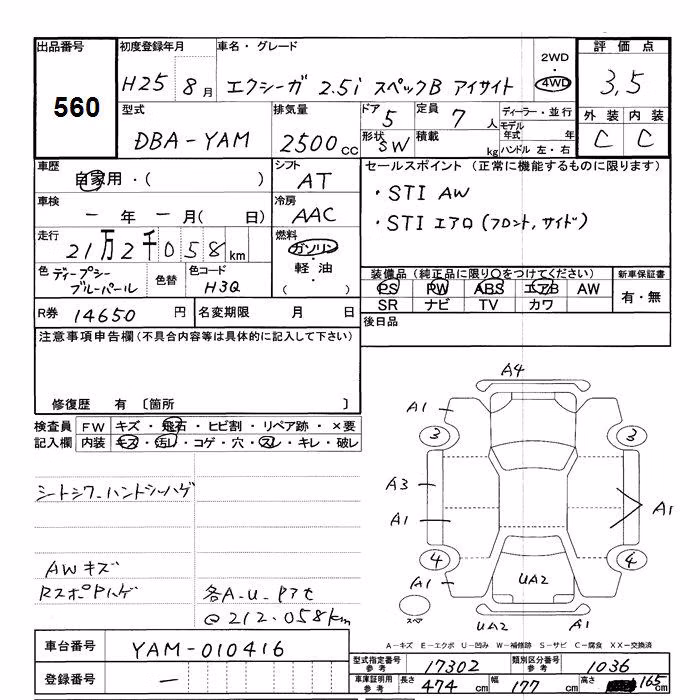 出品番号
560
初度登録年月
H25 8月
車名・グレード
エクシーガ 2.5i スペックB アイサイト
2WD
・
4WD
評価点
3,5
外装 内装
C C
型式
DBA-YAM
排気量
2500cc
ドア 5
形状 SW
定員 7人
積載 kg
ディーラー・並行
モデル年式 年
ハンドル 左・右
車歴
自家用・( )
シフト
AT
セールスポイント (正常に機能するものに限ります)
・STI AW
・STI エアロ(フロント,サイド)
車検
ー年ー月( 日)
冷房
AAC
走行
21万2千058km
燃料
ガソリン
・
軽油
・
( )
色 ディープシーブルーパール
色替
色コード
H3Q
装備品 (純正品に限り○をつけてください)
PS PW ABS エアB AW
SR ナビ TV カワ
新車保証書
有・無
R券 14650円
名変期限 月 日
後日品
注意事項申告欄(不具合内容等は具体的に記入して下さい)
修復歴 有 〔箇所 〕
検査員記入欄
FW キズ・飛石・ヒビ割・リペア跡・×要
内装 キズ・汚レ・コゲ・穴・スレ・キレ・破レ
シートシワ-ハンドシーハゲ
AWキズ
RスポPハゲ
各A-U-Pアt
@212.058km
A4
A1
3 3
A3
A1 A1
4 4
A1
UA2
スペア
UA2 A1
A-キズ E-エクボ U-凹み W-補修跡 S-サビ C-腐食 XX-交換済
車台番号 YAM-010416
登録番号 ー
型式指定番号参考 17302 類別区分番号参考 1036
車庫証明用参考 長さ 474cm 幅 177cm 高さ 165cm